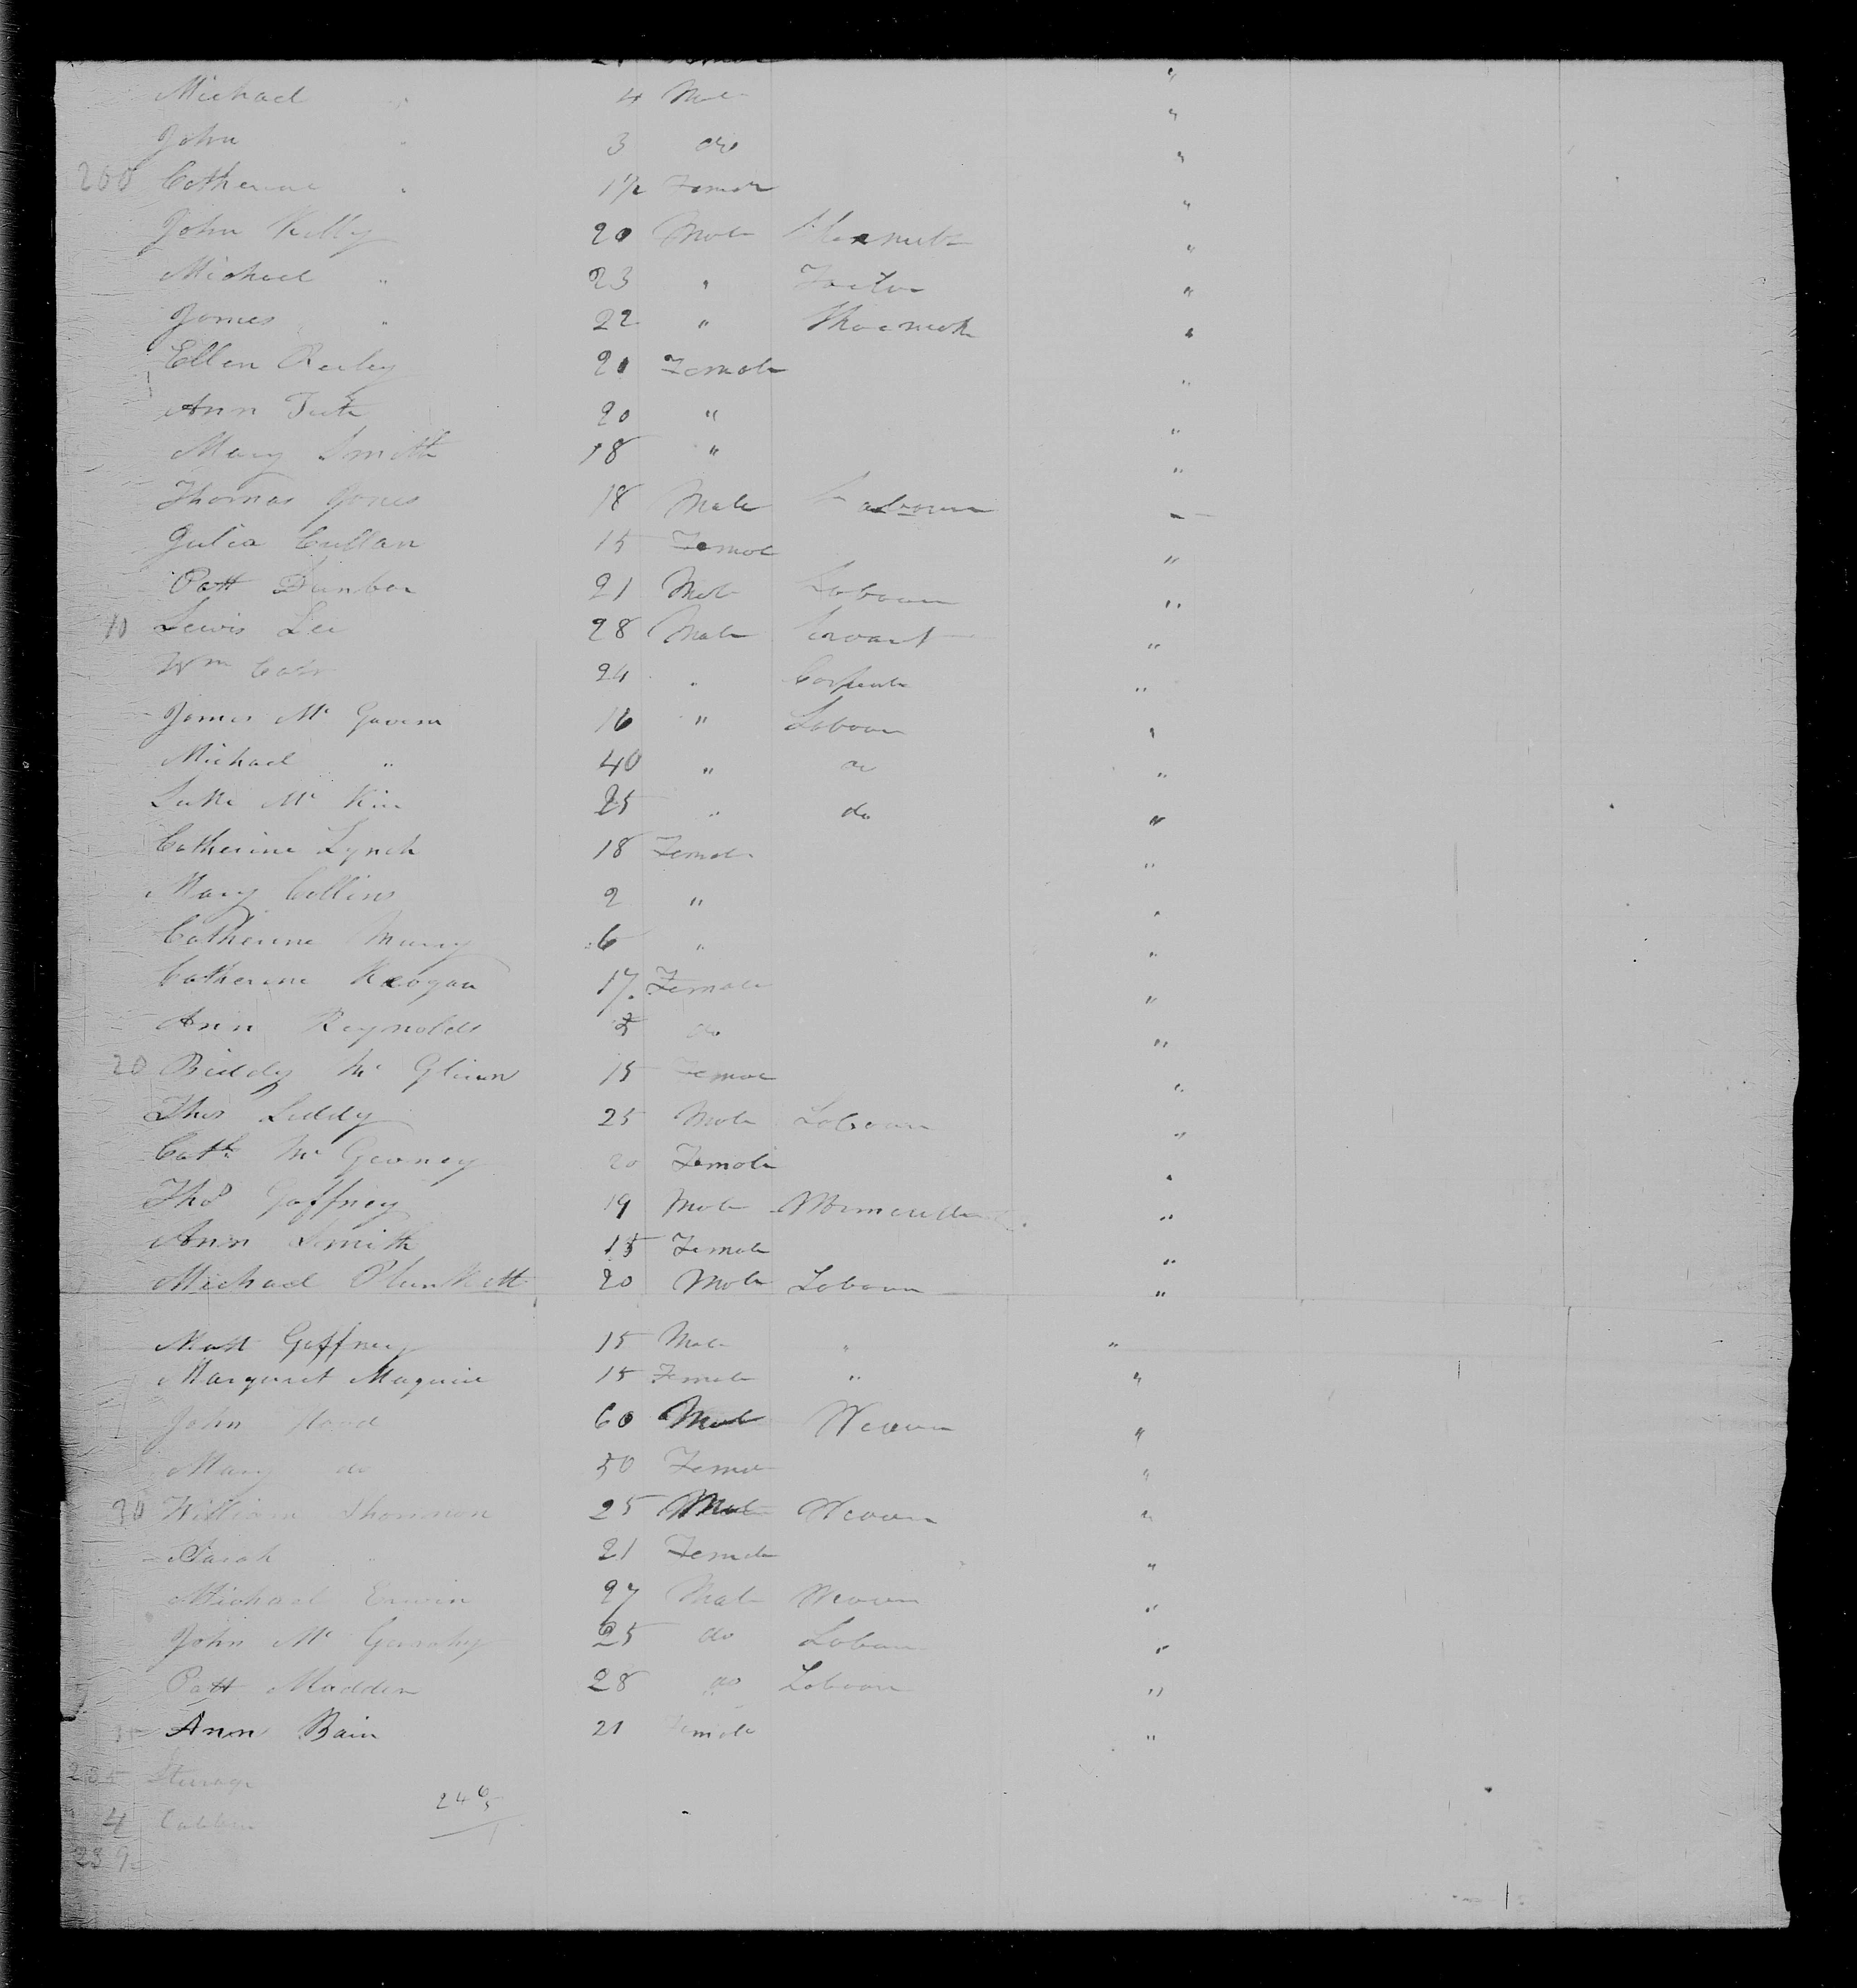 Michael " 4 Male "
John " 3 do "
200 Catherine " 1½ Female "
John Kelly 20 Male "
Michael " 23 " "
James " 22 " Shoemak "
Ellen Reiley 20 Female "
Ann 20 " "
Mary Smith 18 " "
Thomas Jones 18 Male Labourer "
Julia Cullan 15 Female "
Patt Dunbar 21 Male Labourer "
10 Lewis Lee 28 Male Servant "
Wm 24 " Carpenter "
James Mc Govern 16 " Labourer "
Michael " 40 " do "
Luke Mc 25 " do "
Catherine Lynch 18 Female "
Mary Collins 2 " "
Catherine Murry 6 " "
Catherine Keogan 17 Female "
Ann Reynolds do "
20 Biddy Mc Glinn 15 Female "
Thos Liddy 25 Male Labourer "
Cath Mc 20 Female "
Thos Gaffney 19 Male "
Ann Smith 15 Female "
Michael Plunkett 20 Male Labourer "
Matt Gaffney 15 Male " "
Margaret Maguire 15 Female " "
John 60 Male Weaver "
Mary do 50 Female "
30 William Thomson 25 Male Weaver "
Sarah " 21 Female "
Michael Erwin 27 Male Weaver "
John Mc 25 do Labourer "
Patt Madden 28 do Labourer "
Ann Bain 21 Female "
235 Steerage
4 Cabbin
239